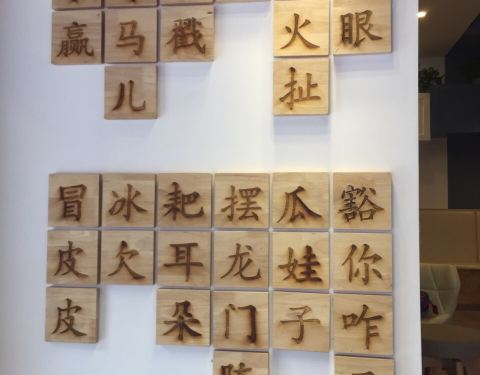 赢
马儿
戳
火扯
眼
冒皮皮
冰欠
耙耳朵
摆龙门
瓜娃子
豁你咋